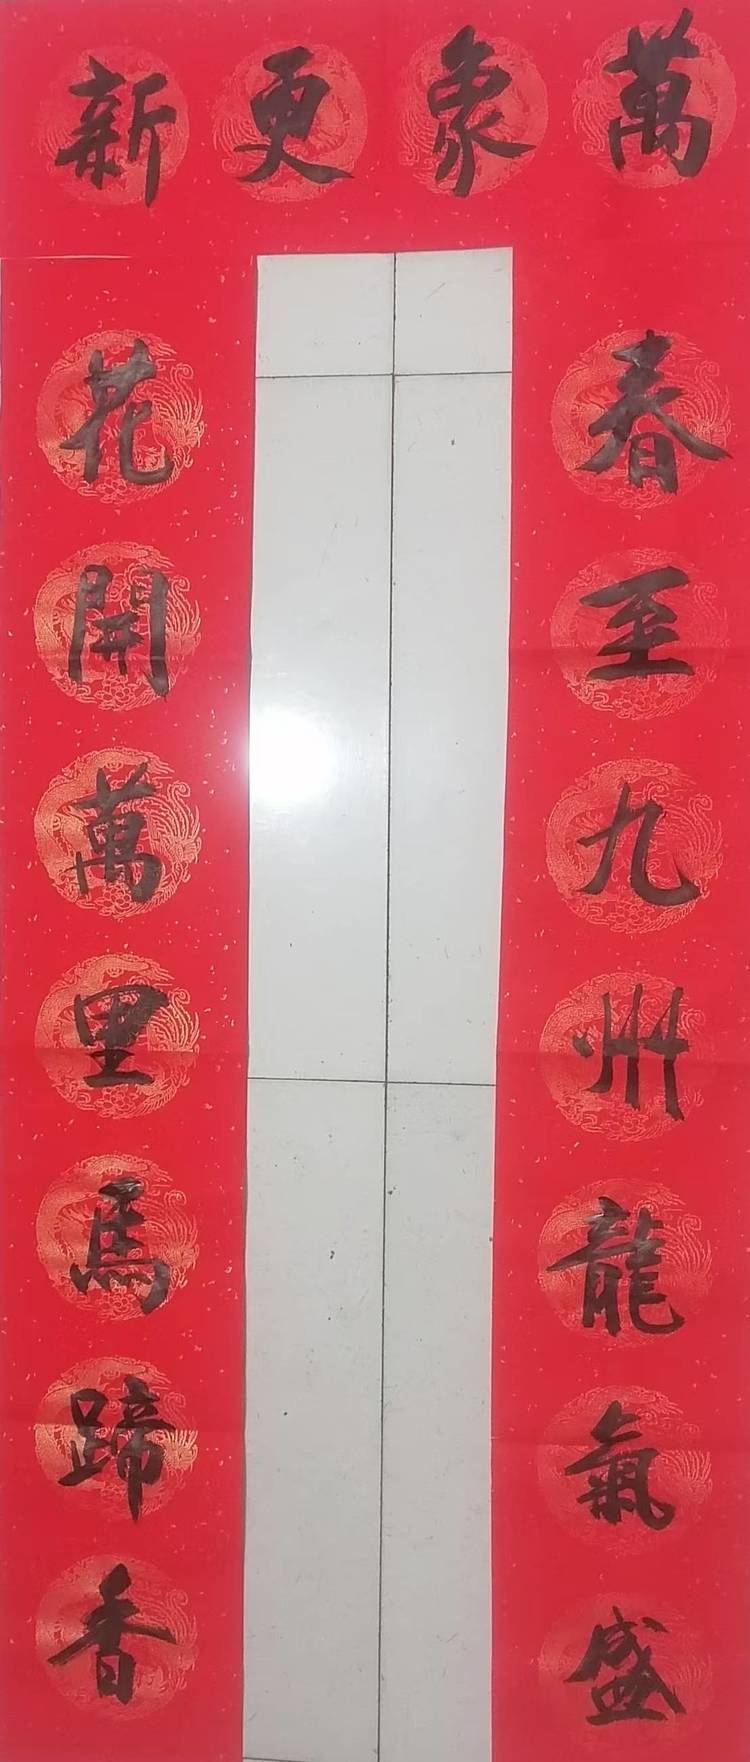 萬象更新
春至九州龍氣盛
花開萬里馬蹄香